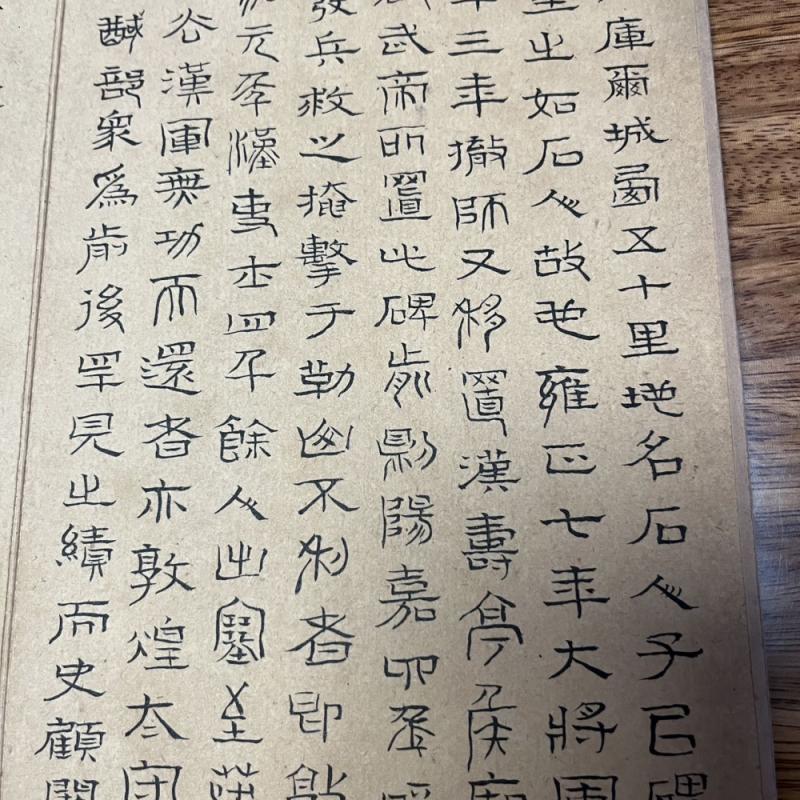 庫爾城西五十里地名石人子㠯碑
望之如石人故也雍正七年大將軍
三年撤師又移置漢壽亭侯廟
武帝所置此碑 陽嘉
發兵救之掩擊于勒山不利者即
元年漢吏士四千餘人出塞至蒲
谷漢軍無功而還者亦敦煌太守
馘部眾為歬後罕見之績而史顧闕